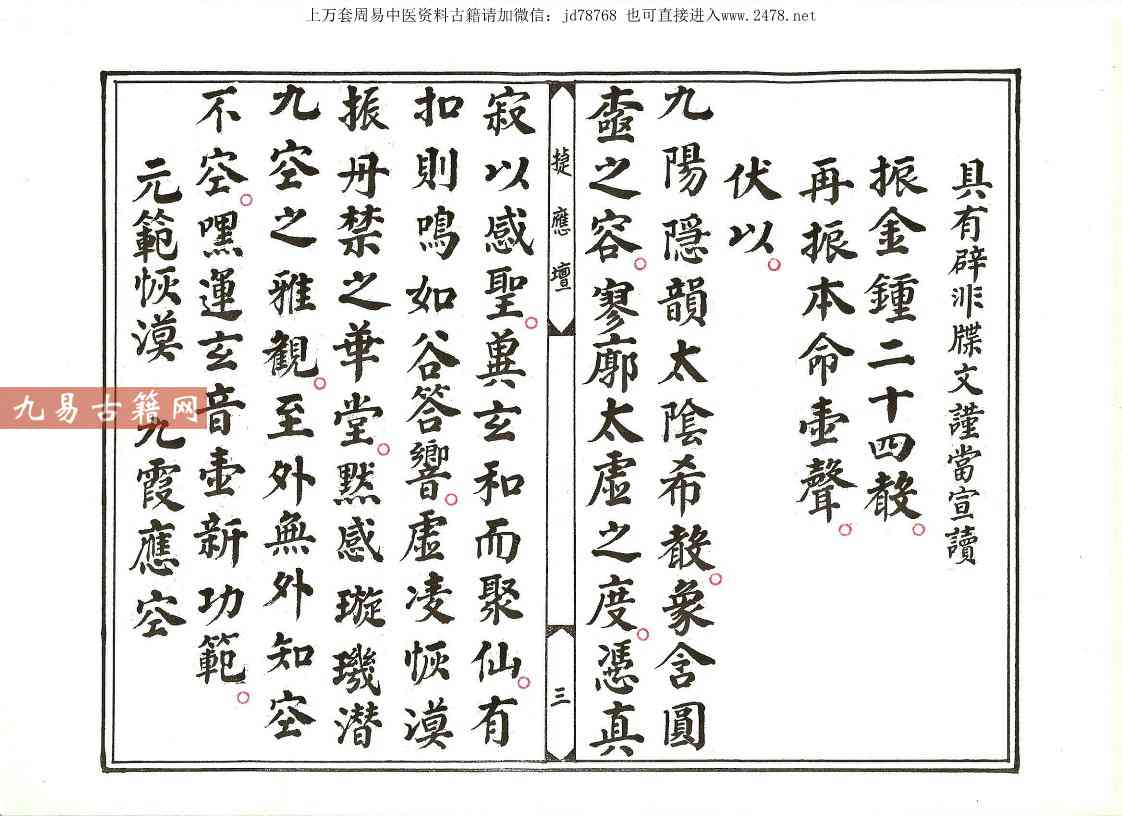 上万套周易中医资料古籍请加微信：jd78768 也可直接进入www.2478.net
具有辟非牒文謹當宣讀
振金鍾二十四㲈
再振本命壷聲。
伏以。
九陽隠韻太陰希㲈。象含圓
壺之容。寥廓太虚之度。憑真
捷應壇
三
寂以感聖。冀玄和而聚仙。有
扣則鳴如谷答響。虚凌恢漠
振丹禁之華堂。默感璇璣潜
九空之雅觀。至外無外知空
不空。嘿運玄音壷新功範。
元範恢漠 九霞應空
九易古籍网